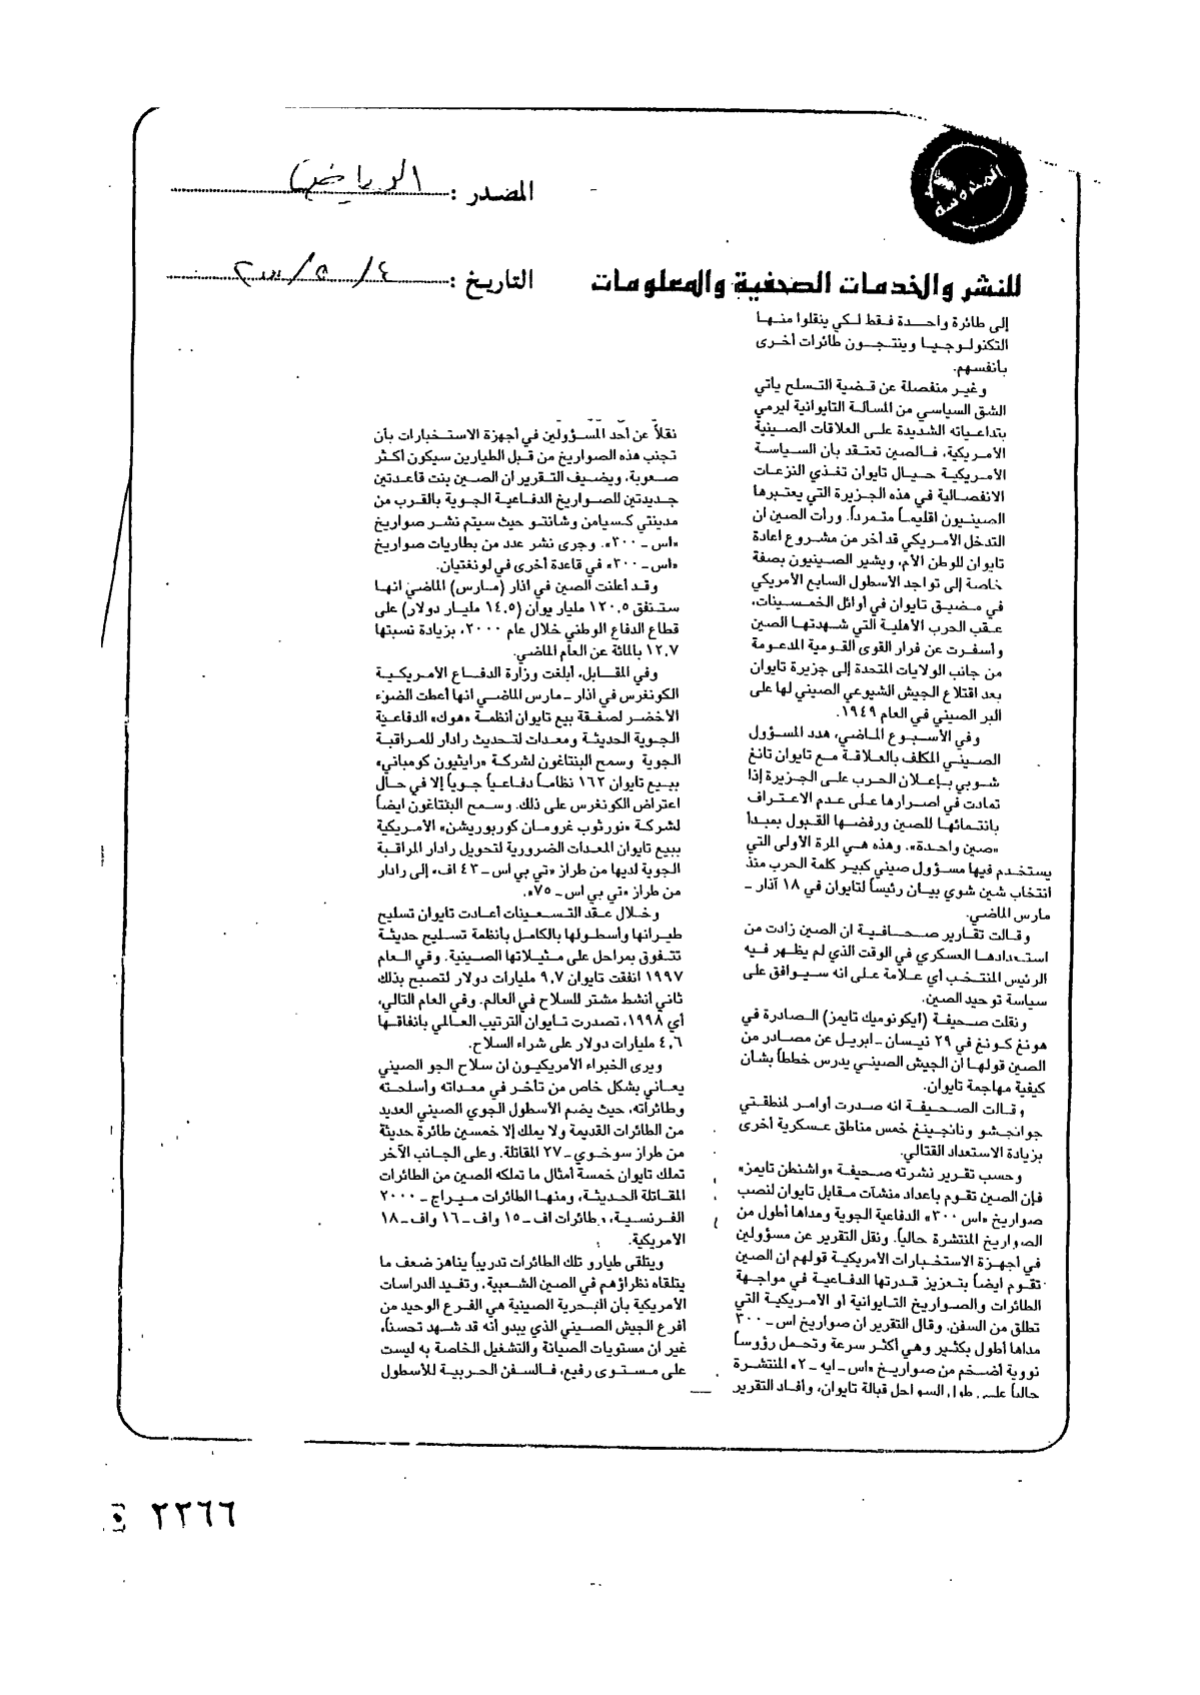 المصدر : الرياض
التاريخ : ٤ / ٥ /
للنشر والخدمات الصحفية والمعلومات
إلى طائرة واحدة فقط لكي ينقلوا منها
التكنولوجيا وينتجون طائرات أخرى
بانفسهم.
وغير منفصلة عن قضية التسلح يأتي
الشق السياسي من المسألة التايوانية ليرمي
بتداعياته الشديدة على العلاقات الصينية
الأمريكية، فالصين تعتقد بان السياسة
الأمريكية حيال تايوان تغذي النزعات
الانفصالية في هذه الجزيرة التي يعتبرها
الصينيون اقليماً متمرداً. ورأت الصين ان
التدخل الأمريكي قد أخر من مشروع اعادة
تايوان للوطن الأم، ويشير الصينيون بصفة
خاصة إلى تواجد الأسطول السابع الأمريكي
في مضيق تايوان في أوائل الخمسينات،
عقب الحرب الأهلية التي شهدتها الصين
وأسفرت عن فرار القوى القومية المدعومة
من جانب الولايات المتحدة إلى جزيرة تايوان
بعد اقتلاع الجيش الشيوعي الصيني لها على
البر الصيني في العام ١٩٤٩.
وفي الأسبوع الماضي، هدد المسؤول
الصيني المكلف بالعلاقة مع تايوان تانغ
شوبي بإعلان الحرب على الجزيرة إذا
تمادت في اصرارها على عدم الاعتراف
بانتمائها للصين ورفضها القبول بمبدأ
«صين واحدة». وهذه هي المرة الأولى التي
يستخدم فيها مسؤول صيني كبير كلمة الحرب منذ
انتخاب شين شوي بيان رئيساً لتايوان في ١٨ آذار -
مارس الماضي.
وقالت تقارير صحافية ان الصين زادت من
استعدادها العسكري في الوقت الذي لم يظهر فيه
الرئيس المنتخب أي علامة على انه سيوافق على
سياسة توحيد الصين.
ونقلت صحيفة (ايكونوميك تايمز) الصادرة في
هونغ كونغ في ٢٩ نيسان - ابريل عن مصادر من
الصين قولها ان الجيش الصيني يدرس خططاً بشأن
كيفية مهاجمة تايوان.
وقالت الصحيفة انه صدرت أوامر لمنطقتي
جوانجشو ونانجينغ خمس مناطق عسكرية أخرى
بزيادة الاستعداد القتالي.
وحسب تقرير نشرته صحيفة «واشنطن تايمز»
فإن الصين تقوم باعداد منشآت مقابل تايوان لنصب
صواريخ «اس ٣٠٠» الدفاعية الجوية ومداها أطول من
الصواريخ المنتشرة حالياً. ونقل التقرير عن مسؤولين
في أجهزة الاستخبارات الأمريكية قولهم ان الصين
تقوم ايضاً بتعزيز قدرتها الدفاعية في مواجهة
الطائرات والصواريخ التايوانية او الأمريكية التي
تطلق من السفن. وقال التقرير ان صواريخ اس - ٣٠٠
مداها أطول بكثير وهي أكثر سرعة وتحمل رؤوساً
نووية أضخم من صواريخ «اس - ايه - ٢» المنتشرة
حالياً على طول السواحل قبالة تايوان، وأفاد التقرير
نقلاً عن أحد المسؤولين في أجهزة الاستخبارات بأن
تجنب هذه الصواريخ من قبل الطيارين سيكون أكثر
صعوبة، ويضيف التقرير ان الصين بنت قاعدتين
جديدتين للصواريخ الدفاعية الجوية بالقرب من
مدينتي كسيامن وشانتو حيث سيتم نشر صواريخ
«اس - ٣٠٠». وجرى نشر عدد من بطاريات صواريخ
«اس - ٣٠٠» في قاعدة أخرى في لونغتيان.
وقد أعلنت الصين في اذار (مارس) الماضي انها
ستنفق ١٢٠,٥ مليار يوان (١٤,٥ مليار دولار) على
قطاع الدفاع الوطني خلال عام ٢٠٠٠، بزيادة نسبتها
١٢,٧ بالمائة عن العام الماضي.
وفي المقابل، أبلغت وزارة الدفاع الأمريكية
الكونغرس في اذار - مارس الماضي انها أعطت الضوء
الأخضر لصفقة بيع تايوان أنظمة «هوك» الدفاعية
الجوية الحديثة ومعدات لتحديث رادار للمراقبة
الجوية وسمح البنتاغون لشركة «رايثيون كومباني»
ببيع تايوان ١٦٢ نظاماً دفاعياً جوياً إلا في حال
اعتراض الكونغرس على ذلك. وسمح البنتاغون ايضاً
لشركة «نورثوب غرومان كوربوريشن» الأمريكية
ببيع تايوان المعدات الضرورية لتحويل رادار المراقبة
الجوية لديها من طراز «تي بي اس - ٤٣ اف» إلى رادار
من طراز «تي بي اس - ٧٥».
وخلال عقد التسعينات أعادت تايوان تسليح
طيرانها وأسطولها بالكامل بأنظمة تسليح حديثة
تتفوق بمراحل على مثيلاتها الصينية. وفي العام
١٩٩٧ انفقت تايوان ٩,٧ مليارات دولار لتصبح بذلك
ثاني أنشط مشتر للسلاح في العالم. وفي العام التالي،
أي ١٩٩٨، تصدرت تايوان الترتيب العالمي بانفاقها
٤,٦ مليارات دولار على شراء السلاح.
ويرى الخبراء الأمريكيون ان سلاح الجو الصيني
يعاني بشكل خاص من تأخر في معداته وأسلحته
وطائراته، حيث يضم الأسطول الجوي الصيني العديد
من الطائرات القديمة ولا يملك إلا خمسين طائرة حديثة
من طراز سوخوي - ٢٧ المقاتلة. وعلى الجانب الآخر
تملك تايوان خمسة أمثال ما تملكه الصين من الطائرات
المقاتلة الحديثة، ومنها الطائرات ميراج - ٢٠٠٠
الفرنسية، وطائرات اف - ١٥ واف - ١٦ واف - ١٨
الأمريكية.
ويتلقى طيارو تلك الطائرات تدريباً يناهز ضعف ما
يتلقاه نظراؤهم في الصين الشعبية، وتفيد الدراسات
الأمريكية بان البحرية الصينية هي الفرع الوحيد من
أفرع الجيش الصيني الذي يبدو انه قد شهد تحسناً،
غير ان مستويات الصيانة والتشغيل الخاصة به ليست
على مستوى رفيع، فالسفن الحربية للأسطول
٢٢٦٦